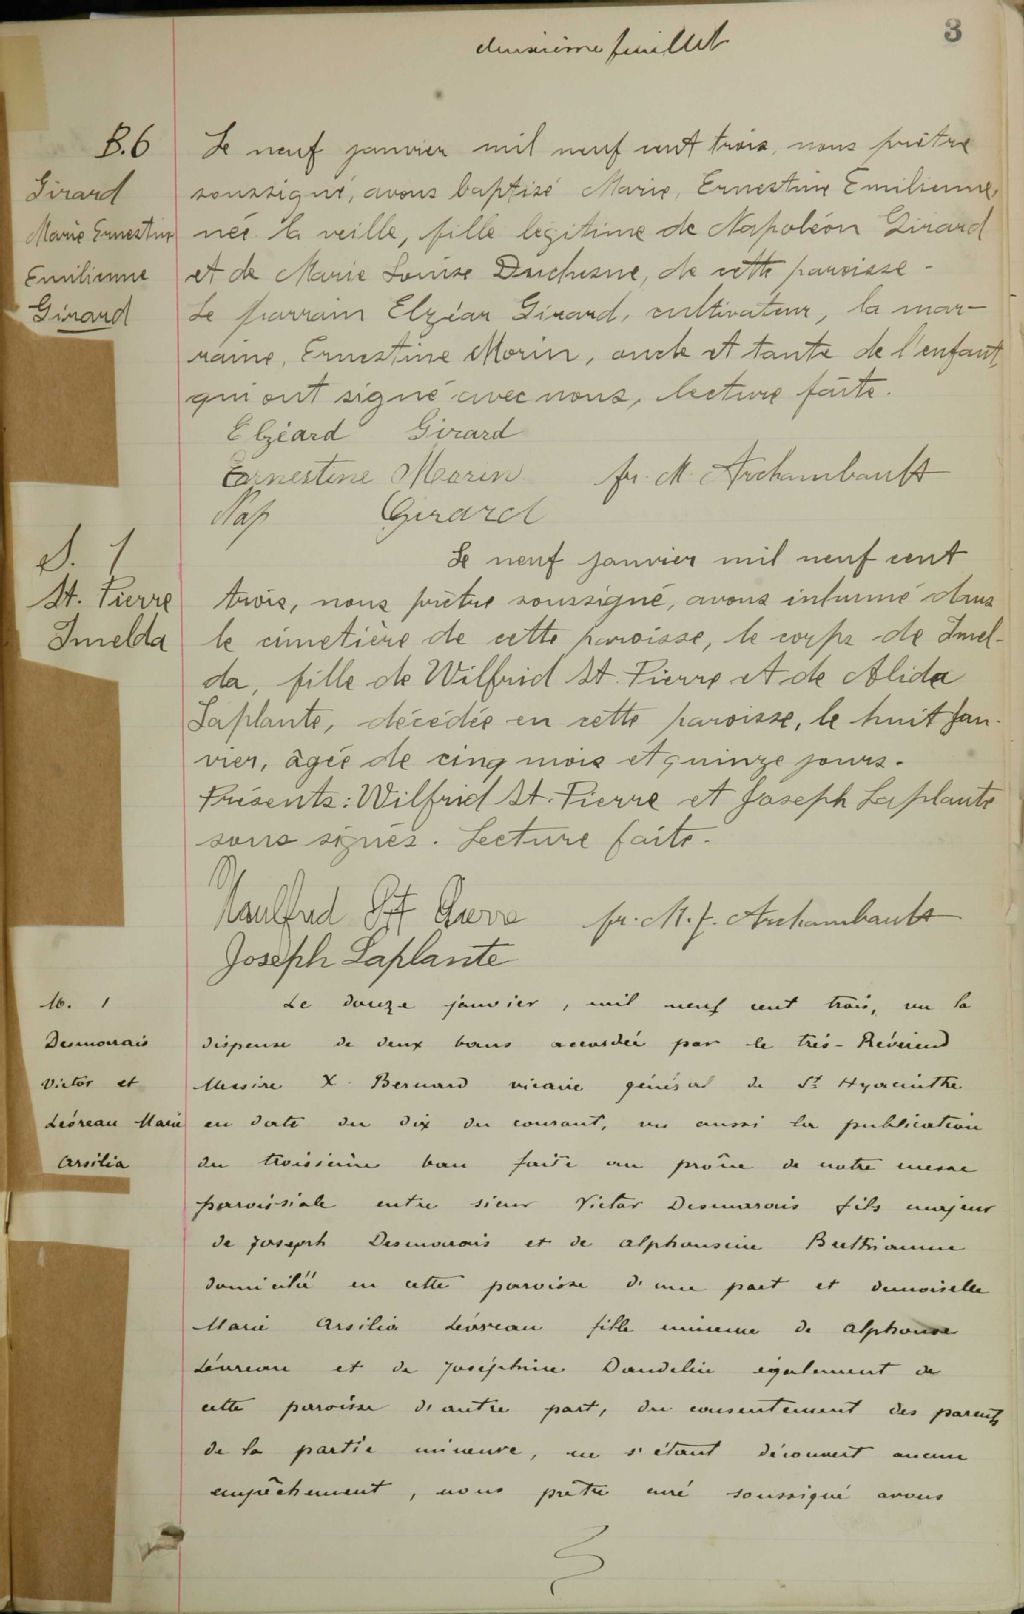 deuxième feuillet
3
B.6
Girard
Marie Ernestine
Emilienne
Girard
Le neuf janvier mil neuf cent trois, nous prêtre
soussigné, avons baptisé Marie, Ernestine Emilienne,
née la veille, fille légitime de Napoléon Girard
et de Marie Louise Duchesne, de cette paroisse -
Le parrain Elzéar Girard, cultivateur, la mar-
raine, Ernestine Morin, oncle et tante de l'enfant,
qui ont signé avec nous, lecture faite.
Elzéard Girard
Ernestine Morin fr. M. Archambault
Nap Girard
S. 1
St. Pierre
Imelda
Le neuf janvier mil neuf cent
trois, nous prêtre soussigné, avons inhumé dans
le cimetière de cette paroisse, le corps de Imel-
da, fille de Wilfrid St. Pierre et de Alida
Laplante, décédée en cette paroisse, le huit jan-
vier, âgée de cinq mois et quinze jours.
Présents: Wilfrid St. Pierre et Joseph Laplante
sous signés. Lecture faite -
St Pierre fr. M. J. Archambault
Joseph Laplante
M. 1
Desmarais
Victor et
Léveau Marie
Arsilia
Le douze janvier, mil neuf cent trois, vu la
dispense de deux bans accordée par le très-Révérend
Messire X. Bernard vicaire général de St Hyacinthe
en date du dix du courant, vu aussi la publication
du troisième ban faite au prône de notre messe
paroissiale entre sieur Victor Desmarais fils majeur
de Joseph Desmarais et de Alphonsine
domicilié en cette paroisse d'une part et demoiselle
Marie Arsilia Léveau fille mineure de Alphonse
Léveau et de Joséphine Dandelin également de
cette paroisse d'autre part, du consentement des parents
de la partie mineure, ne s'étant découvert aucun
empêchement, nous prêtre curé soussigné avons